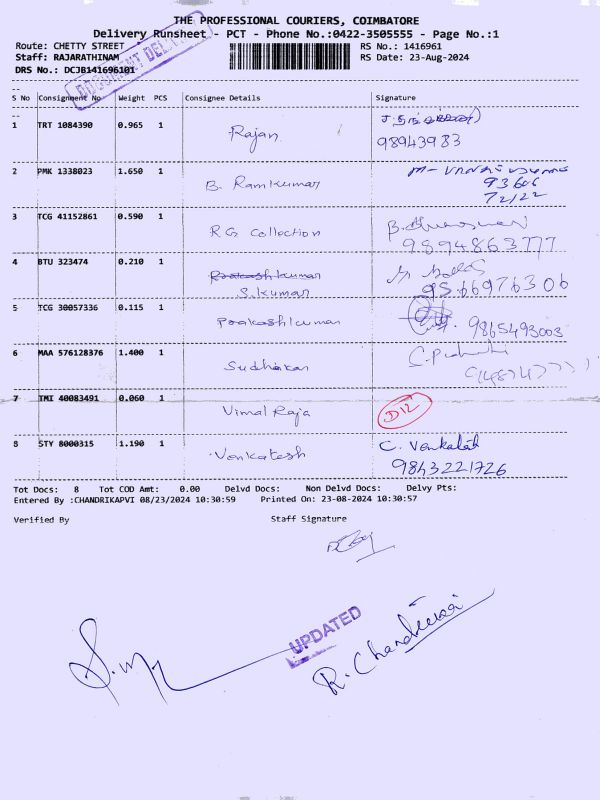 THE PROFESSIONAL COURIERS, COIMBATORE
Delivery Runsheet - PCT - Phone No.:0422-3505555 - Page No.:1
Route: CHETTY STREET RS No.: 1416961
Staff: RAJARATHINAM RS Date: 23-Aug-2024
DRS No.: DCJB141696101
DOCUMENT
--
S No Consignment No Weight PCS Consignee Details Signature
--
1 TRT 1084390 0.965 1 Rajan
98943983
2 PMK 1338023 1.650 1 B. Ramkumar
93606
72122
3 TCG 41152861 0.590 1 RG Collection
9894863777
4 BTU 323474 0.210 1 Prakash kumar
S.kumar 9566976306
5 TCG 30057336 0.115 1 Prakashkumar 9865493003
6 MAA 576128376 1.400 1 Sudhakar
7 TMI 40083491 0.060 1 Vimal Raja D12
8 STY 8000315 1.190 1 Venkatesh C. Venkatesh
9843221726
Tot Docs: 8 Tot COD Amt: 0.00 Delvd Docs: Non Delvd Docs: Delvy Pts:
Entered By :CHANDRIKAPVI 08/23/2024 10:30:59 Printed On: 23-08-2024 10:30:57
Verified By Staff Signature
UPDATED